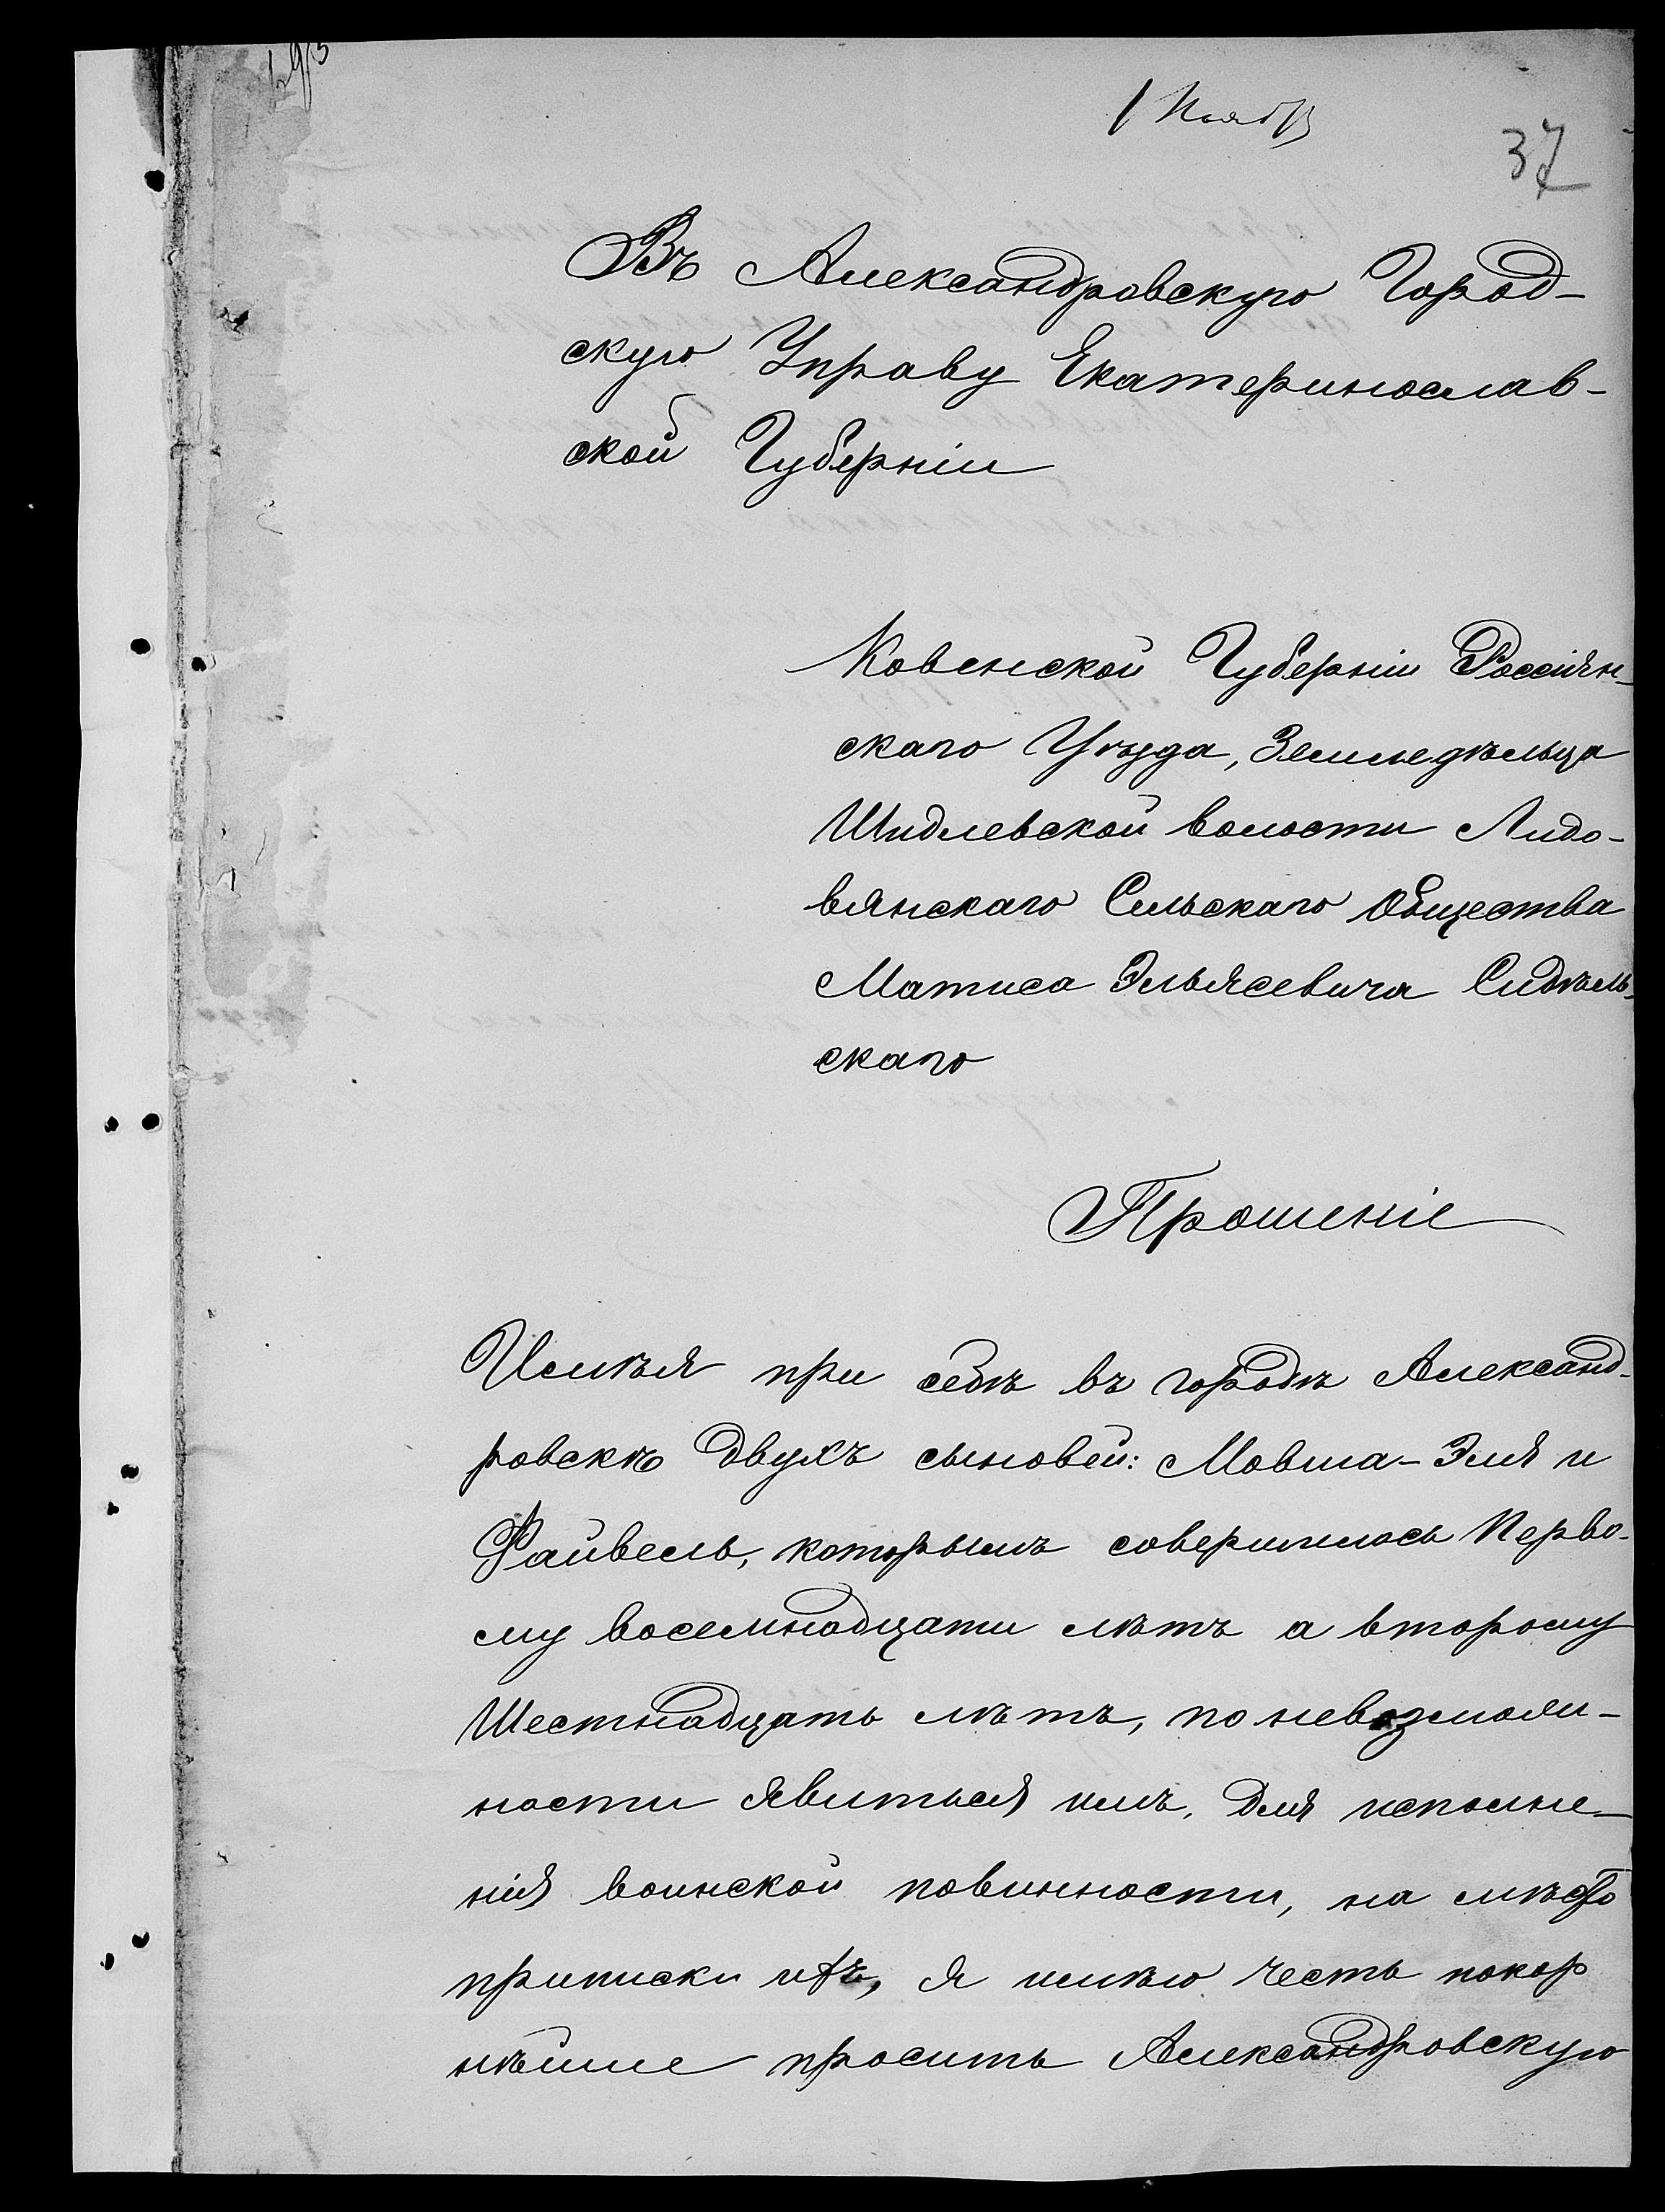 1 Ноябр
37
Въ Александровскую Город-
скую Управу Екатеринослав-
ской Губерніи
Ковенской Губерніи Россіян-
скаго Уѣзда, Земледѣльца
Шидлевской волости Лидо-
вянскаго Сельскаго Общества
Матиса Эльясевича Сидѣль-
скаго
Прошеніе
Имѣя при себѣ въ городѣ Александ-
ровскѣ двухъ сыновей: Мовша-Эля и
Файвель, которымъ совершилось Перво-
му восемнадцати лѣтъ а второму
Шестнадцать лѣтъ, по невозмож-
ности явиться имъ, для исполне-
нія воинской повинности, на мѣсто
приписки ихъ, я имѣю честь покор
нѣйше просить Александровскую